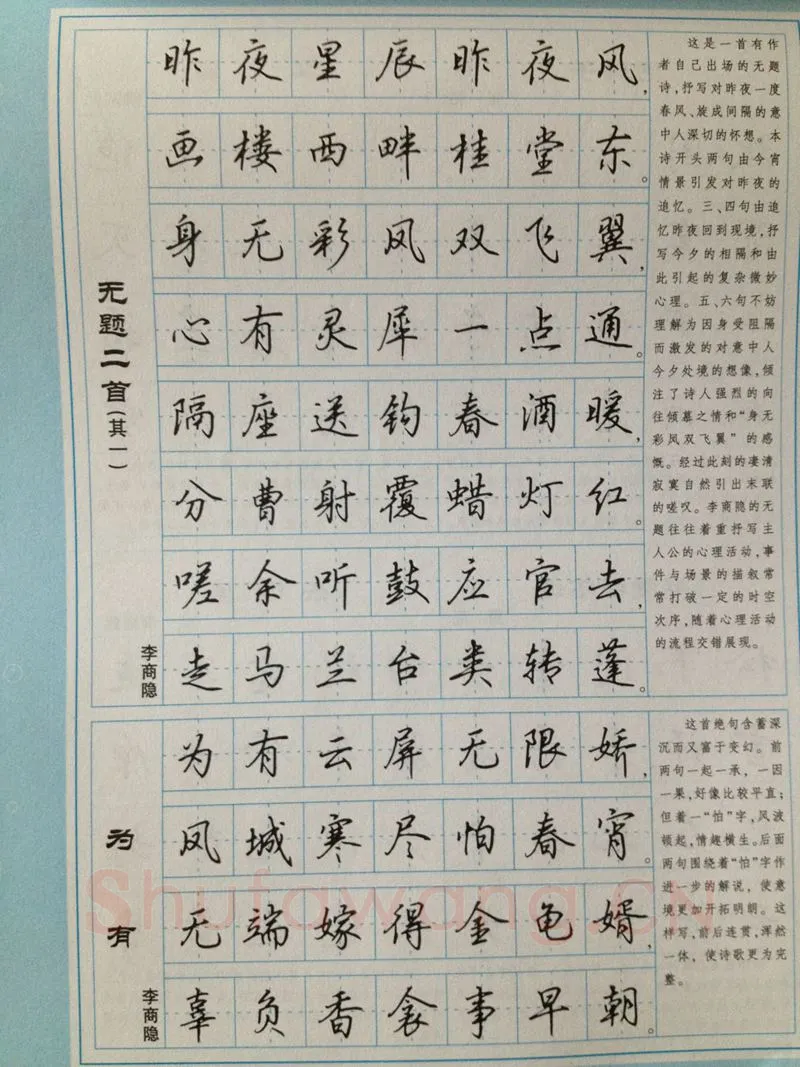 无题二首(其一)
李商隐
昨夜星辰昨夜风,
画楼西畔桂堂东。
身无彩凤双飞翼,
心有灵犀一点通。
隔座送钩春酒暖,
分曹射覆蜡灯红。
嗟余听鼓应官去,
走马兰台类转蓬。
这是一首有作
者自己出场的无题
诗,抒写对昨夜一度
春风、旋成间隔的意
中人深切的怀想。本
诗开头两句由今宵
情景引发对昨夜的
追忆。三、四句由追
忆昨夜回到现境,抒
写今夕的相隔和由
此引起的复杂微妙
心理。五、六句不妨
理解为因身受阻隔
而激发的对意中人
今夕处境的想像,倾
注了诗人强烈的向
往倾慕之情和“身无
彩凤双飞翼”的感
慨。经过此刻的凄清
寂寞自然引出末联
的嗟叹。李商隐的无
题往往着重抒写主
人公的心理活动,事
件与场景的描叙常
常打破一定的时空
次序,随着心理活动
的流程交错展现。
为有
李商隐
为有云屏无限娇,
凤城寒尽怕春宵。
无端嫁得金龟婿,
辜负香衾事早朝。
这首绝句含蓄深
沉而又富于变幻。前
两句一起一承,一因
一果,好像比较平直;
但着一“怕”字,风波
顿起,情趣横生。后面
两句围绕着“怕”字作
进一步的解说,使意
境更加开拓明朗。这
样写,前后连贯,浑然
一体,使诗歌更为完
整。